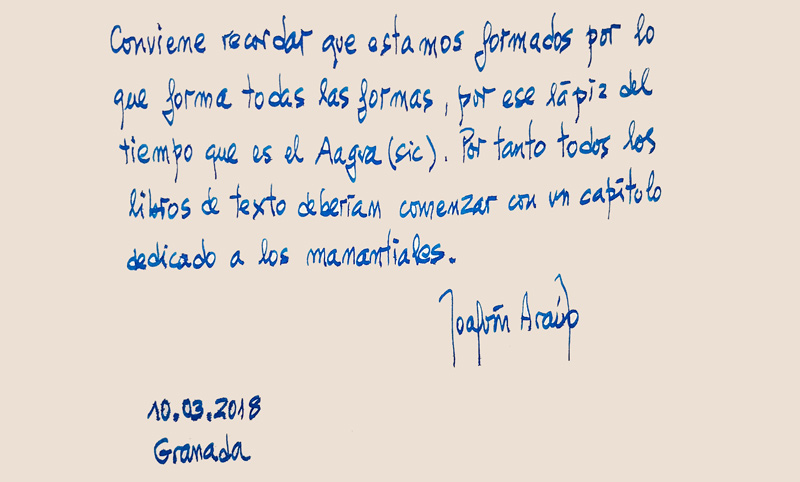 Conviene recordar que estamos formados por lo
que forma todas las formas, por ese lápiz del
tiempo que es el Aagua (sic). Por tanto todos los
libros de texto deberían comenzar con un capítulo
dedicado a los manantiales.
Joaquín Araújo
10.03.2018
Granada